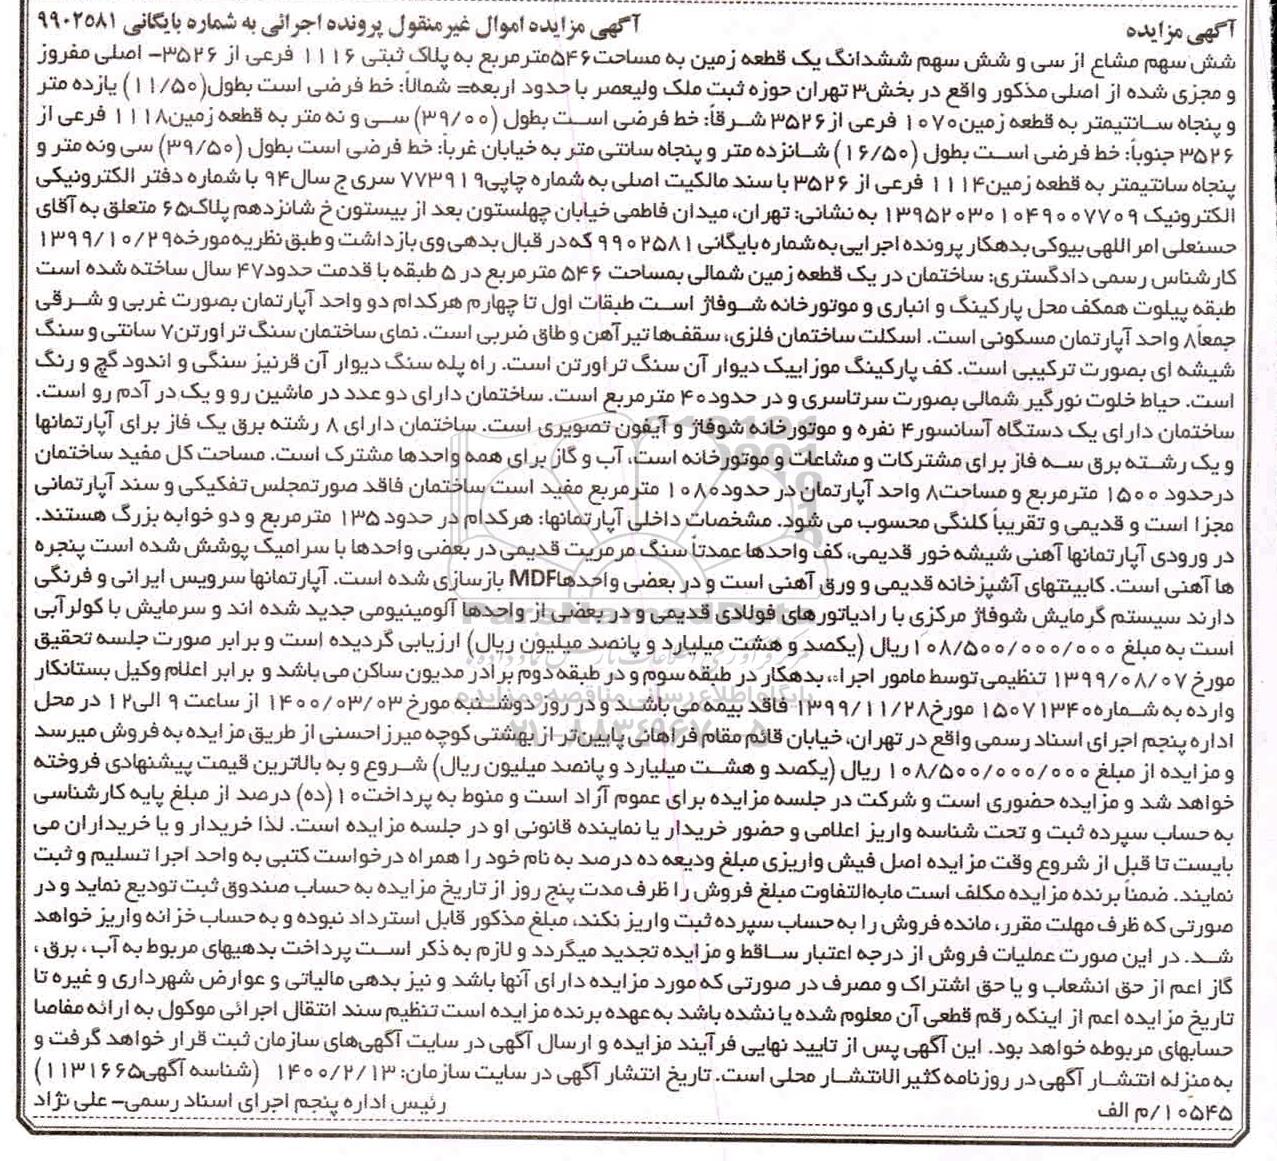 آگهی مزایده
آگهی مزایده اموال غیرمنقول پرونده اجرائی به شماره بایگانی ۹۹۰۲۵۸۱
شش سهم مشاع از سی و شش سهم ششدانگ یک قطعه زمین به مساحت۵۴۶مترمربع به پلاک ثبتی ۱۱۱۶ فرعی از ۳۵۲۶- اصلی مفروز
و مجزی شده از اصلی مذکور واقع در بخش۳ تهران حوزه ثبت ملک ولیعصر با حدود اربعه= شمالاً: خط فرضی است بطول(۱۱/۵۰) یازده متر
و پنجاه سانتیمتر به قطعه زمین۱۰۷۰ فرعی از۳۵۲۶ شرقاً: خط فرضی است بطول (۳۹/۰۰) سی و نه متر به قطعه زمین۱۱۱۸ فرعی از
۳۵۲۶ جنوباً: خط فرضی است بطول (۱۶/۵۰) شانزده متر و پنجاه سانتی متر به خیابان غرباً: خط فرضی است بطول (۳۹/۵۰) سی ونه متر و
پنجاه سانتیمتر به قطعه زمین۱۱۱۴ فرعی از ۳۵۲۶ با سند مالکیت اصلی به شماره چاپی۷۷۳۹۱۹ سری ج سال۹۴ با شماره دفتر الکترونیکی
الکترونیک ۱۳۹۵۲۰۳۰۱۰۴۹۰۰۷۷۰۹ به نشانی: تهران، میدان فاطمی خیابان چهلستون بعد از بیستون خ شانزدهم پلاک۶۵ متعلق به آقای
حسنعلی امراللهی بیوکی بدهکار پرونده اجرایی به شماره بایگانی ۹۹۰۲۵۸۱ که در قبال بدهی وی بازداشت و طبق نظریه مورخه۱۳۹۹/۱۰/۲۹
کارشناس رسمی دادگستری: ساختمان در یک قطعه زمین شمالی بمساحت ۵۴۶ مترمربع در ۵ طبقه با قدمت حدود۴۷ سال ساخته شده است
طبقه پیلوت همکف محل پارکینگ و انباری و موتورخانه شوفاژ است طبقات اول تا چهارم هرکدام دو واحد آپارتمان بصورت غربی و شرقی
جمعاً۸ واحد آپارتمان مسکونی است. اسکلت ساختمان فلزی، سقف‌ها تیرآهن و طاق ضربی است. نمای ساختمان سنگ تراورتن۷ سانتی و سنگ
شیشه ای بصورت ترکیبی است. کف پارکینگ موزاییک دیوار آن سنگ تراورتن است. راه پله سنگ دیوار آن قرنیز سنگی و اندود گچ و رنگ
است. حیاط خلوت نورگیر شمالی بصورت سرتاسری و در حدود۴۰ مترمربع است. ساختمان دارای دو عدد در ماشین رو و یک در آدم رو است.
ساختمان دارای یک دستگاه آسانسور۴ نفره و موتورخانه شوفاژ و آیفون تصویری است. ساختمان دارای ۸ رشته برق یک فاز برای آپارتمانها
و یک رشته برق سه فاز برای مشترکات و مشاعات و موتورخانه است. آب و گاز برای همه واحدها مشترک است. مساحت کل مفید ساختمان
درحدود ۱۵۰۰ مترمربع و مساحت۸ واحد آپارتمان در حدود۱۰۸۰ مترمربع مفید است ساختمان فاقد صورتمجلس تفکیکی و سند آپارتمانی
مجزا است و قدیمی و تقریباً کلنگی محسوب می شود. مشخصات داخلی آپارتمانها: هرکدام در حدود ۱۳۵ مترمربع و دو خوابه بزرگ هستند.
در ورودی آپارتمانها آهنی شیشه خور قدیمی، کف واحدها عمدتاً سنگ مرمریت قدیمی در بعضی واحدها با سرامیک پوشش شده است پنجره
ها آهنی است. کابینتهای آشپزخانه قدیمی و ورق آهنی است و در بعضی واحدهاMDF بازسازی شده است. آپارتمانها سرویس ایرانی و فرنگی
دارند سیستم گرمایش شوفاژ مرکزی با رادیاتورهای فولادی قدیمی و در بعضی از واحدها آلومینیومی جدید شده اند و سرمایش با کولرآبی
است به مبلغ ۱۰۸/۵۰۰/۰۰۰/۰۰۰ریال (یکصد و هشت میلیارد و پانصد میلیون ریال) ارزیابی گردیده است و برابر صورت جلسه تحقیق
مورخ ۱۳۹۹/۰۸/۰۷ تنظیمی توسط مامور اجراء، بدهکار در طبقه سوم و در طبقه دوم برادر مدیون ساکن می باشد و برابر اعلام وکیل بستانکار
وارده به شماره۱۵۰۷۱۳۴۰ مورخ۱۳۹۹/۱۱/۲۸ فاقد بیمه می باشد و در روز دوشنبه مورخ ۱۴۰۰/۰۳/۰۳ از ساعت ۹ الی۱۲ در محل
اداره پنجم اجرای اسناد رسمی واقع در تهران، خیابان قائم مقام فراهانی پایین‌تر از بهشتی کوچه میرزاحسنی از طریق مزایده به فروش میرسد
و مزایده از مبلغ ۱۰۸/۵۰۰/۰۰۰/۰۰۰ ریال (یکصد و هشت میلیارد و پانصد میلیون ریال) شروع و به بالاترین قیمت پیشنهادی فروخته
خواهد شد و مزایده حضوری است و شرکت در جلسه مزایده برای عموم آزاد است و منوط به پرداخت۱۰(ده) درصد از مبلغ پایه کارشناسی
به حساب سپرده ثبت و تحت شناسه واریز اعلامی و حضور خریدار یا نماینده قانونی او در جلسه مزایده است. لذا خریدار و یا خریداران می
بایست تا قبل از شروع وقت مزایده اصل فیش واریزی مبلغ ودیعه ده درصد به نام خود را همراه درخواست کتبی به واحد اجرا تسلیم و ثبت
نمایند. ضمناً برنده مزایده مکلف است مابه‌التفاوت مبلغ فروش را ظرف مدت پنج روز از تاریخ مزایده به حساب صندوق ثبت تودیع نماید و در
صورتی که ظرف مهلت مقرر، مانده فروش را به حساب سپرده ثبت واریز نکند، مبلغ مذکور قابل استرداد نبوده و به حساب خزانه واریز خواهد
شد. در این صورت عملیات فروش از درجه اعتبار ساقط و مزایده تجدید میگردد و لازم به ذکر است پرداخت بدهیهای مربوط به آب ، برق ،
گاز اعم از حق انشعاب و یا حق اشتراک و مصرف در صورتی که مورد مزایده دارای آنها باشد و نیز بدهی مالیاتی و عوارض شهرداری و غیره تا
تاریخ مزایده اعم از اینکه رقم قطعی آن معلوم شده یا نشده باشد به عهده برنده مزایده است تنظیم سند انتقال اجرائی موکول به ارائه مفاصا
حسابهای مربوطه خواهد بود. این آگهی پس از تایید نهایی فرآیند مزایده و ارسال آگهی در سایت آگهی‌های سازمان ثبت قرار خواهد گرفت و
به منزله انتشار آگهی در روزنامه کثیرالانتشار محلی است. تاریخ انتشار آگهی در سایت سازمان: ۱۴۰۰/۲/۱۳ (شناسه آگهی۱۱۳۱۶۶۵)
۱۰۵۴۵/م الف
رئیس اداره پنجم اجرای اسناد رسمی- علی نژاد
ParsNamadData
پایگاه اطلاع رسانی مناقصه و مزایده